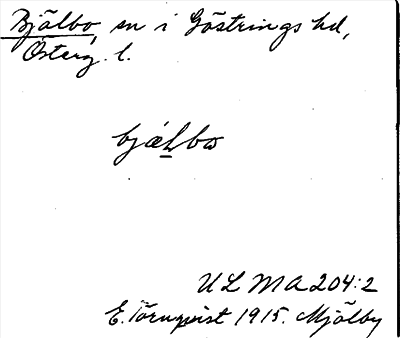 Bjälbo, sn i Göstrings hd,
Österg. l.
bjælbω
ULMA 204:2
E. Törnqvist 1915. Mjölby